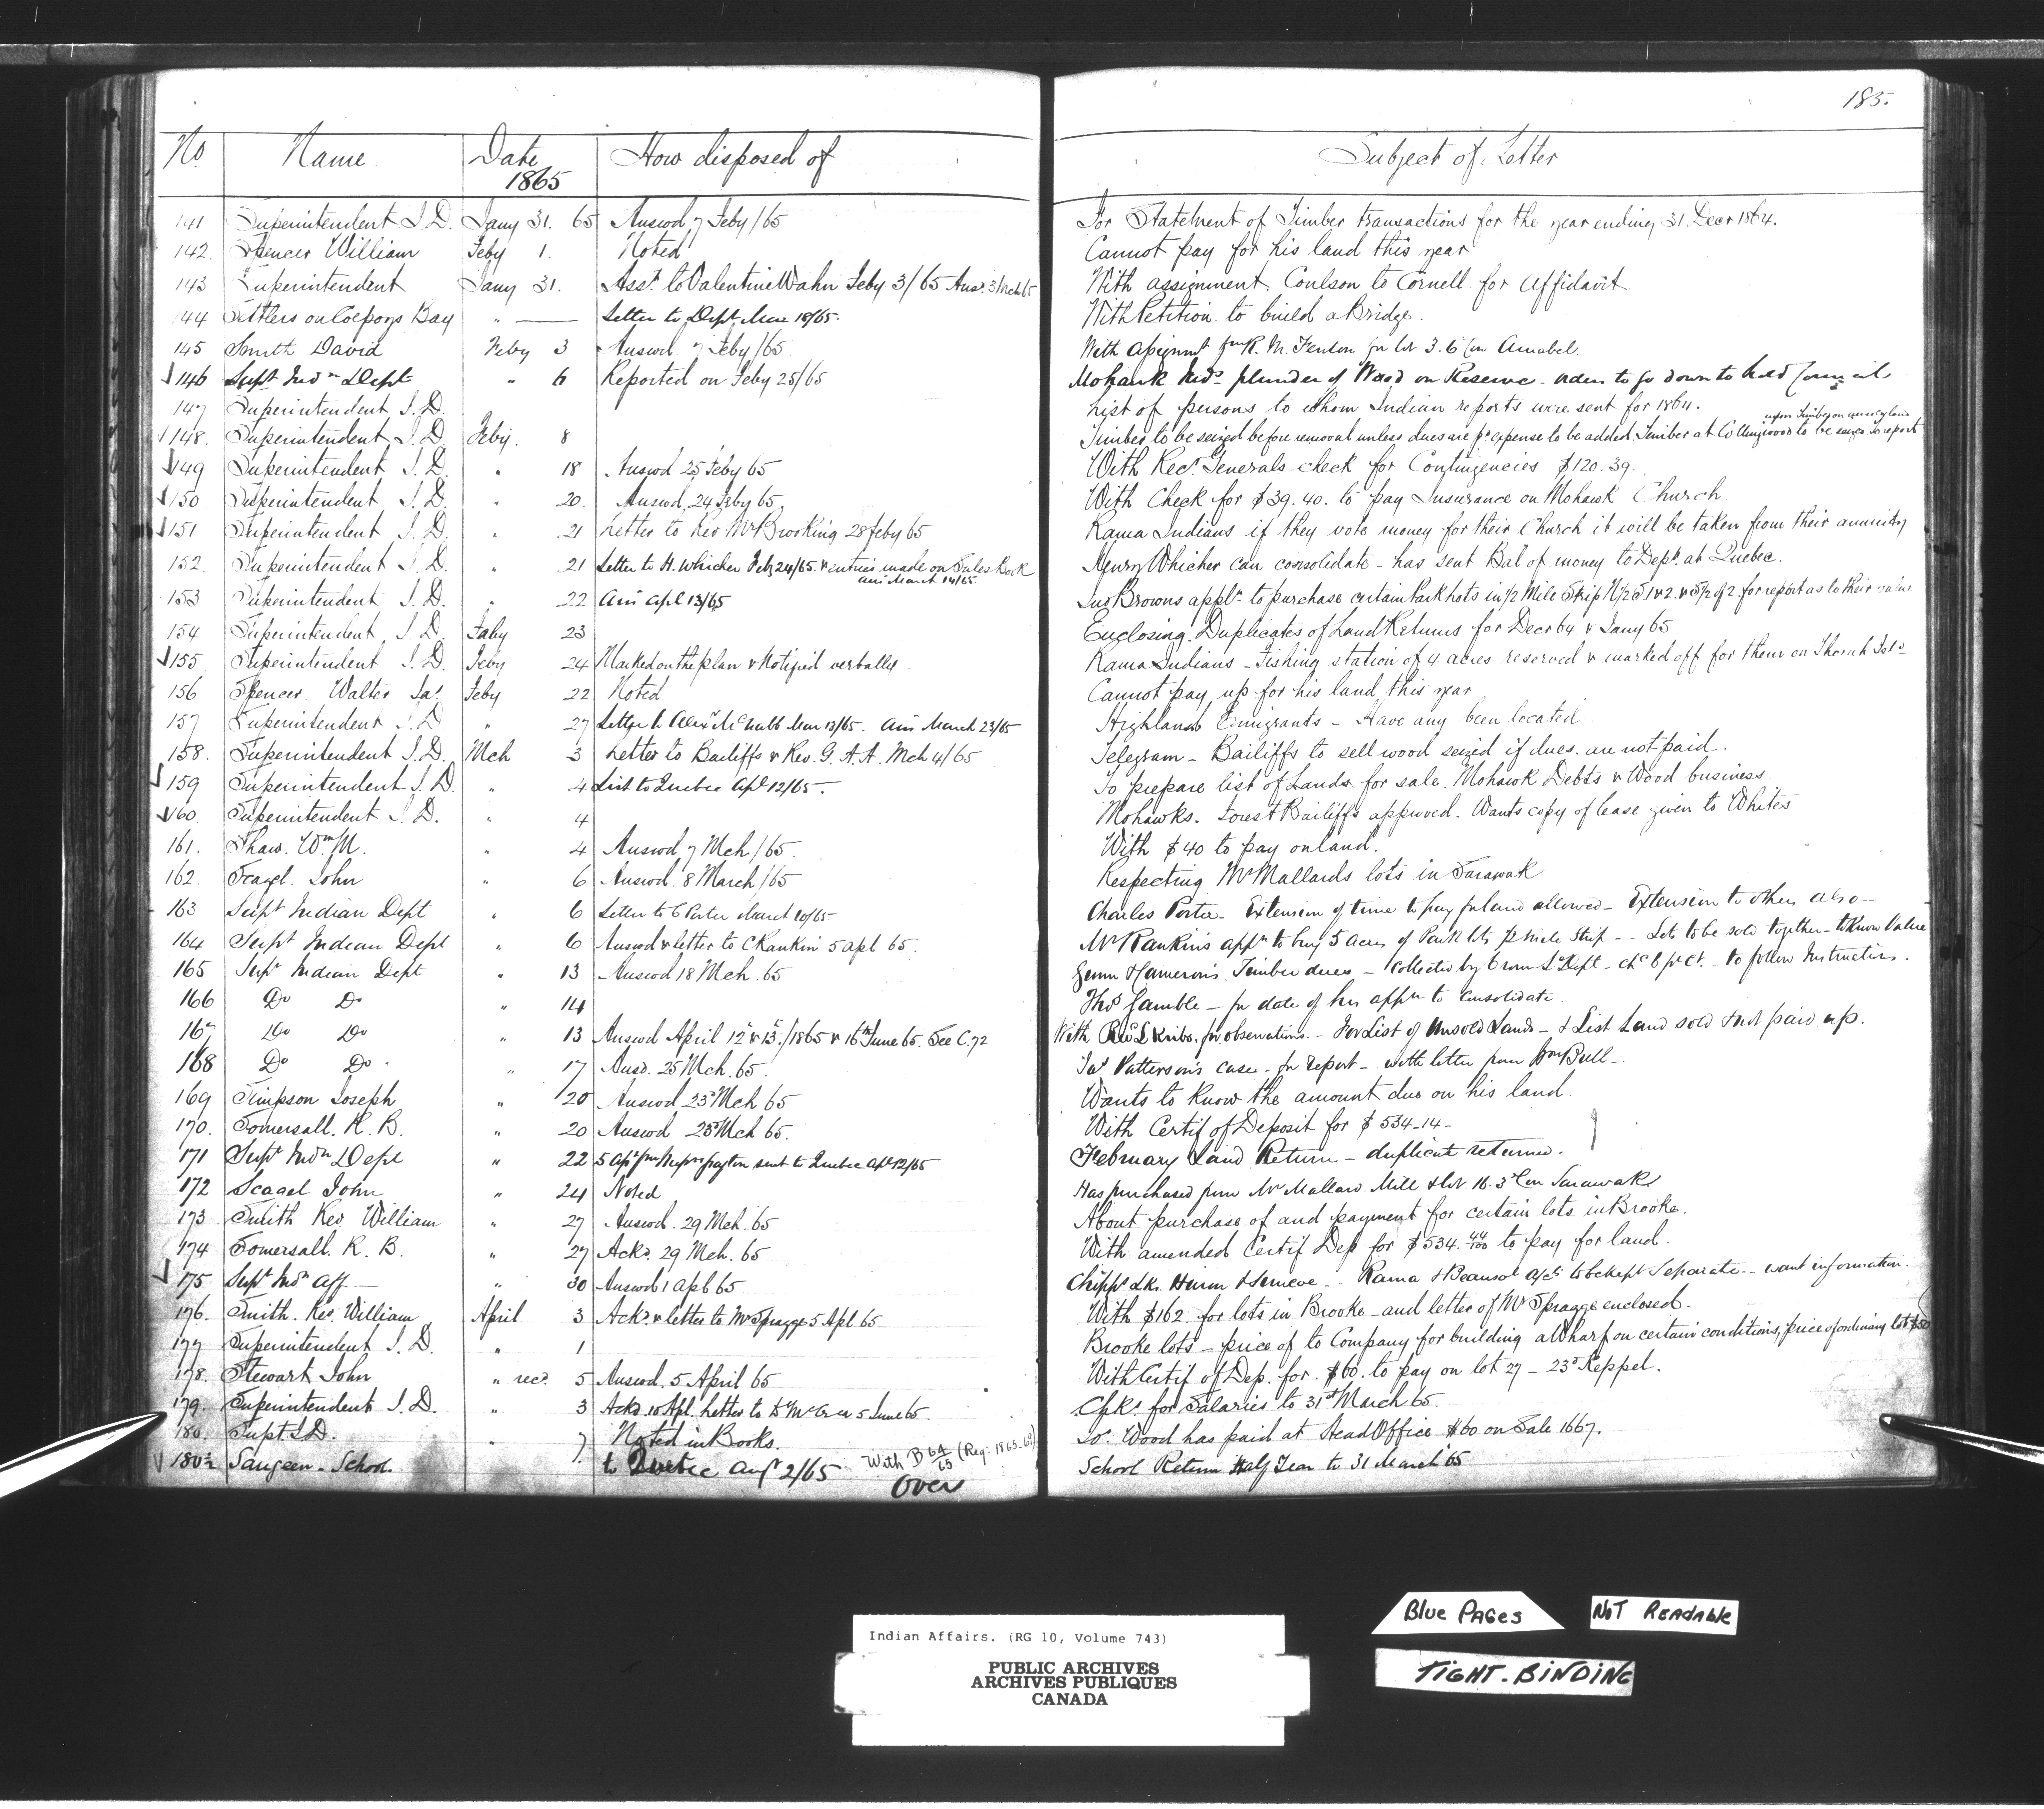 185.
No. Name Date 1865 How disposed of Subject of Letter
141 Superintendent I. D. Jany 31. 65 Answd 7 Feby/65 For Statement of Timber transactions for the year ending 31. Decr 1864.
142. Spencer William Feby 1. Noted Cannot pay for his land this year
143 Superintendent Jany 31. Asst. to Valentine Wahn Feby 3/65 Ansd. 3 Mch 65 With assignment, Coulson to Cornell for Affidavit
144 Settlers on Colpoys Bay " — Letter to Dept. Mar 18/65. With Petition to build a Bridge.
145 Smith David Feby 3 Answd. 7 Feby/65. With assignmt from R. M. Fenton for lot 3. 6 Con Amabel.
146 Supt. Indn Dept " 6 Reported on Feby 25/65 Mohawk Inds. plunder of Wood on Reserve - to go down to hold Council
147 Superintendent I. D. List of persons to whom Indian reports were sent for 1864.
148. Superintendent I. D. Feby. 8 Timber to be seized before removal unless dues are pd expense to be added. Timber at Collingwood to be
149 Superintendent I. D. " 18 Answd 25 Feby 65 With Recr. Generals check for Contingencies $120.39.
150 Superintendent I. D. " 20. Answd, 24 Feby 65 With Check for $39.40. to pay Insurance on Mohawk Church
151 Superintendent I. D. " 21 Letter to Rev Mr Brooking 28 Feby 65 Rama Indians if they vote money for their Church it will be taken from their annuity
152. Superintendent I. D. " 21 Letter to H. Whicher Feby 24/65 & entries made on Sales Book ansd March 14/65 Henry Whicher can consolidate - has sent Bal of money to Dept. at Quebec.
153 Superintendent I. D. " 22 Ansd Apl 13/65 Jno Browns appln. to purchase certain Park Lots in 1/2 Mile Strip N 1/2 & S 1/2 of 2 for report as to their value
154 Superintendent I. D. Feby 23 Enclosing Duplicates of Land Returns for Decr 64 & Jany 65
155 Superintendent I. D. Feby 24 Marked on the plan & Notified verbally Rama Indians - Fishing station of 4 acres reserved & marked off for them on Thorah Isld
156 Spencer Walter Jas. Feby 22 Noted Cannot pay up for his land this year
157 Superintendent I. D. " 27 Letter to Alexr McNabb Mar 13/65. Ansd March 23/65 Highland Emigrants - Have any been located
158. Superintendent I. D. Mch 3 Letter to Bailiffs & Rev. G. A. A. Mch 4/65 Telegram - Bailiffs to sell wood seized if dues are not paid.
159 Superintendent I. D. " 4 List to Quebec Apl 12/65. To prepare list of Lands for sale. Mohawk Debts & Wood business.
160. Superintendent I. D. " 4 Mohawks. Forest Bailiffs approved. Wants copy of lease given to Whites
161. Shaw. Wm. M. " 4 Answd 7 Mch/65. With $40 to pay on land.
162. Scagel. John " 6 Answd. 8 March/65 Respecting Mr Mallards lots in Sarawak
163 Supt Indian Dept " 6 Letter to C Porter March 10/65 Charles Porter - Extension of time to pay for land allowed - Extension to others also -
164 Supt Indian Dept " 6 Answd & letter to C Rankin 5 Apl 65. Mr Rankins appn to buy 5 acres of Park lots 1/2 mile Strip - - Lots to be sold together - to Know Value
165 Supt Indian Dept " 13 Answd 18 Mch. 65 Camerons Timber dues - Collected by Crown Ls Dept - to follow Instructions.
166 Do Do " 14 Thos. Gamble - for date of his appn to consolidate.
167 Do Do " 13 Answd April 12 & 13./1865 & 16th June 65. See C. 72 With for observations. - For List of Unsold Lands - & List Land sold & not paid up.
168 Do Do " 17 Ansd. 25 Mch. 65. Jas Pattersons case - for report - with letter from Wm Bull -.
169 Simpson Joseph " 20 Answd 23d Mch 65 Wants to know the amount due on his land.
170. Somersall. R. B. " 20 Answd 23d Mch 65. With Certif of Deposit for $534.14-
171 Supt Indn Dept " 22 sent to Quebec Apl 12/65 February Land Return - duplicate returned.
172 Scagel John " 24 Noted Has purchased from Mr Mallard Mill & lot 16. 3d Con Sarawak
173 Smith Rev William " 27 Answd. 29 Mch. 65 About purchase of and payment for certain lots in Brooke.
174 Somersall. R. B. " 27 Ackd. 29 Mch. 65 With amended Certif Dep for $534. 44/100 to pay for land.
175 Supt Indn Aff - " 30 Answd 1 Apl 65 Chipps Lks. Huron & Simcoe - Rama & Beausol a/cs to be kept Separate - - want information.
176. Smith. Rev. William April 3 Ackd. & letter to Mr Spragge 5 Apl 65 With $162 for lots in Brooke - and letter of Mr Spragge enclosed.
177 Superintendent I. D. " 1 Brooke lots - price of to Company for building a Wharf on certain conditions, price of ordinary lots $50
178. Stewart John " recd. 5 Answd. 5 April 65 With Certif of Dep. for $60. to pay on lot 27 - 23d Keppel.
179. Superintendent I. D. " 3 Ackd. 10 Apl. Letter to Dr McCrea 5 June 65. Chks. for Salaries to 31st March 65.
180. Supt. I. D. " 7 Noted in Books. Jos. Wood has paid at Head Office $60 on Sale 1667.
180 1/2 Saugeen - School. to Quebec Augt 2/65 With B 64/65 (Reg: 1865-69) School Return Half Year to 31 March 65
Over
Indian Affairs. (RG 10, Volume 743)
PUBLIC ARCHIVES
ARCHIVES PUBLIQUES
CANADA
BLUE PAGES
NOT READABLE
TIGHT-BINDING